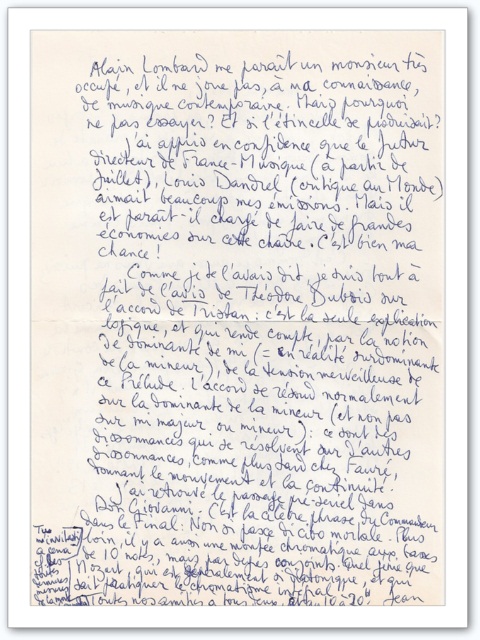 Alain Lombard me paraît un monsieur très
occupé, et il ne joue pas, à ma connaissance,
de musique contemporaine. Mais pourquoi
ne pas essayer? Et si l'étincelle se produisait?
J'ai appris en confidence que le futur
directeur de France-Musique (à partir de
Juillet), Louis Dandrel (critique au Monde)
aimait beaucoup mes émissions. Mais il
est paraît-il chargé de faire de grandes
économies sur cette chaîne. C'est bien ma
chance!
Comme je te l'avais dit, je suis tout à
fait de l'avis de Théodore Dubois sur
l'accord de Tristan: c'est la seule explication
logique, et qui rende compte, par la notion
de dominante de mi (= en réalité surdominante
de la mineur), de la tension merveilleuse de
ce Prélude. L'accord se résoud normalement
sur la dominante de la mineur (et non pas
sur mi majeur ou mineur): ce sont des
dissonances qui se résolvent sur d'autres
dissonances, comme plus tard chez Fauré,
donnant le mouvement et la continuité.
J'ai retrouvé le passage pré-sériel dans
Don Giovanni. C'est la célèbre phrase du Commandeur
dans le Final: Non si pasce di cibo mortale. Plus
loin, il y a aussi une montée chromatique aux basses
de 10 notes, mais par degrés conjoints. Quel génie que
Mozart, qui est généralement si diatonique, et qui
sait pratiquer le chromatisme intégral.
Toutes nos amitiés à tous deux, Jean